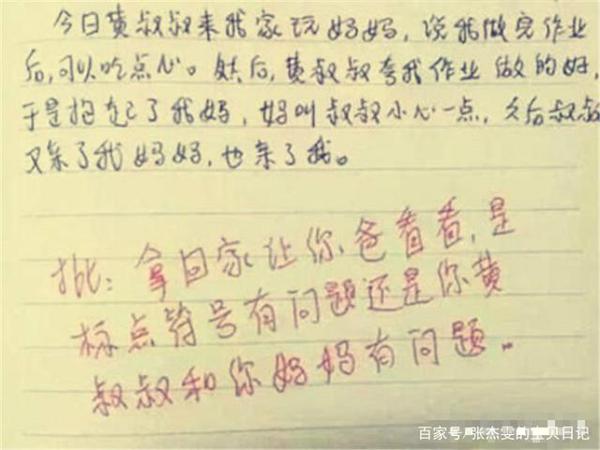 今日黄叔叔来我家玩妈妈，说我做完作业
后，可以吃点心。然后，黄叔叔夸我作业做的好，
于是抱起了我妈，妈叫叔叔小心一点，久后叔叔
又亲了我妈妈，也亲了我。
批：拿回家让你爸看看，是
标点符号有问题还是你黄
叔叔和你妈妈有问题。
百家号/张杰雯的宝贝日记